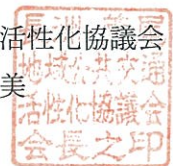 活性化協議会
美
地域公共交通
活性化協議会
会長之印